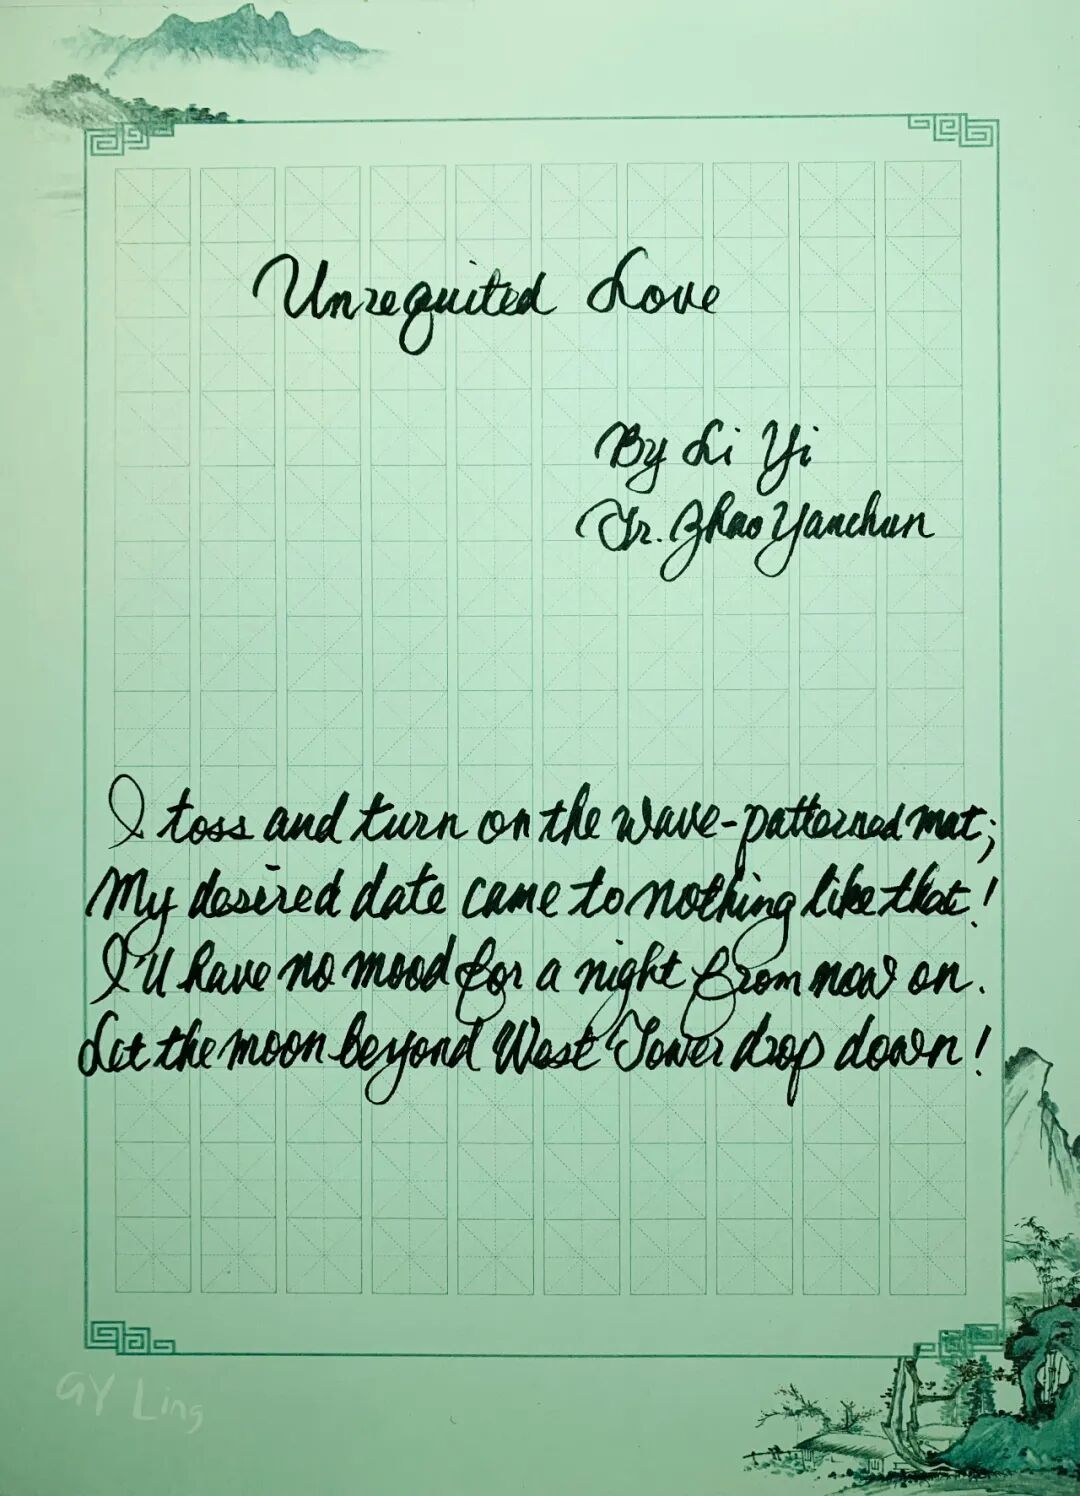 Unrequited Love
By Li Yi
Tr. Zhao Yanchun
I toss and turn on the wave-patterned mat;
My desired date came to nothing like that!
I'll have no mood for a night from now on.
Let the moon beyond West Tower drop down!
GY Ling